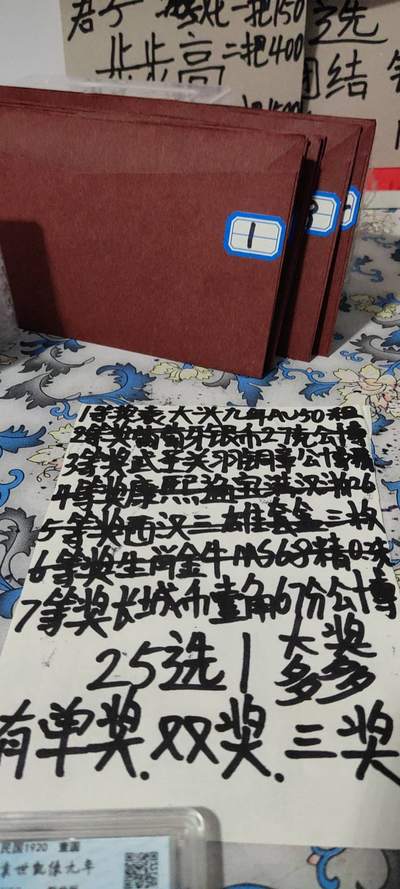 一把150
二把400
步步高
选
团结
1
1等奖袁大头九年AU50粗
2等奖葡萄牙银币27克公博
3等奖
4等奖康熙通宝满汉浙
5等奖西汉三雄盒三枚
6等奖生肖金牛MS68精
7等奖长城币壹角67分公博
25选1 大奖多多
有单奖.双奖.三奖
民国1920 壹圆
袁世凯像九年